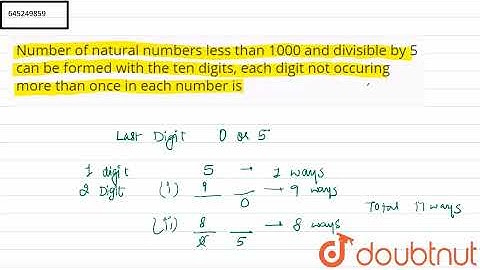 645249859
Number of natural numbers less than 1000 and divisible by 5
can be formed with the ten digits, each digit not occuring
more than once in each number is
Last Digit 0 or 5
1 digit 5 → 1 ways
2 Digit (i) 9 0 → 9 ways
Total 17 ways
(ii) 8 5 → 8 ways
doubtnut